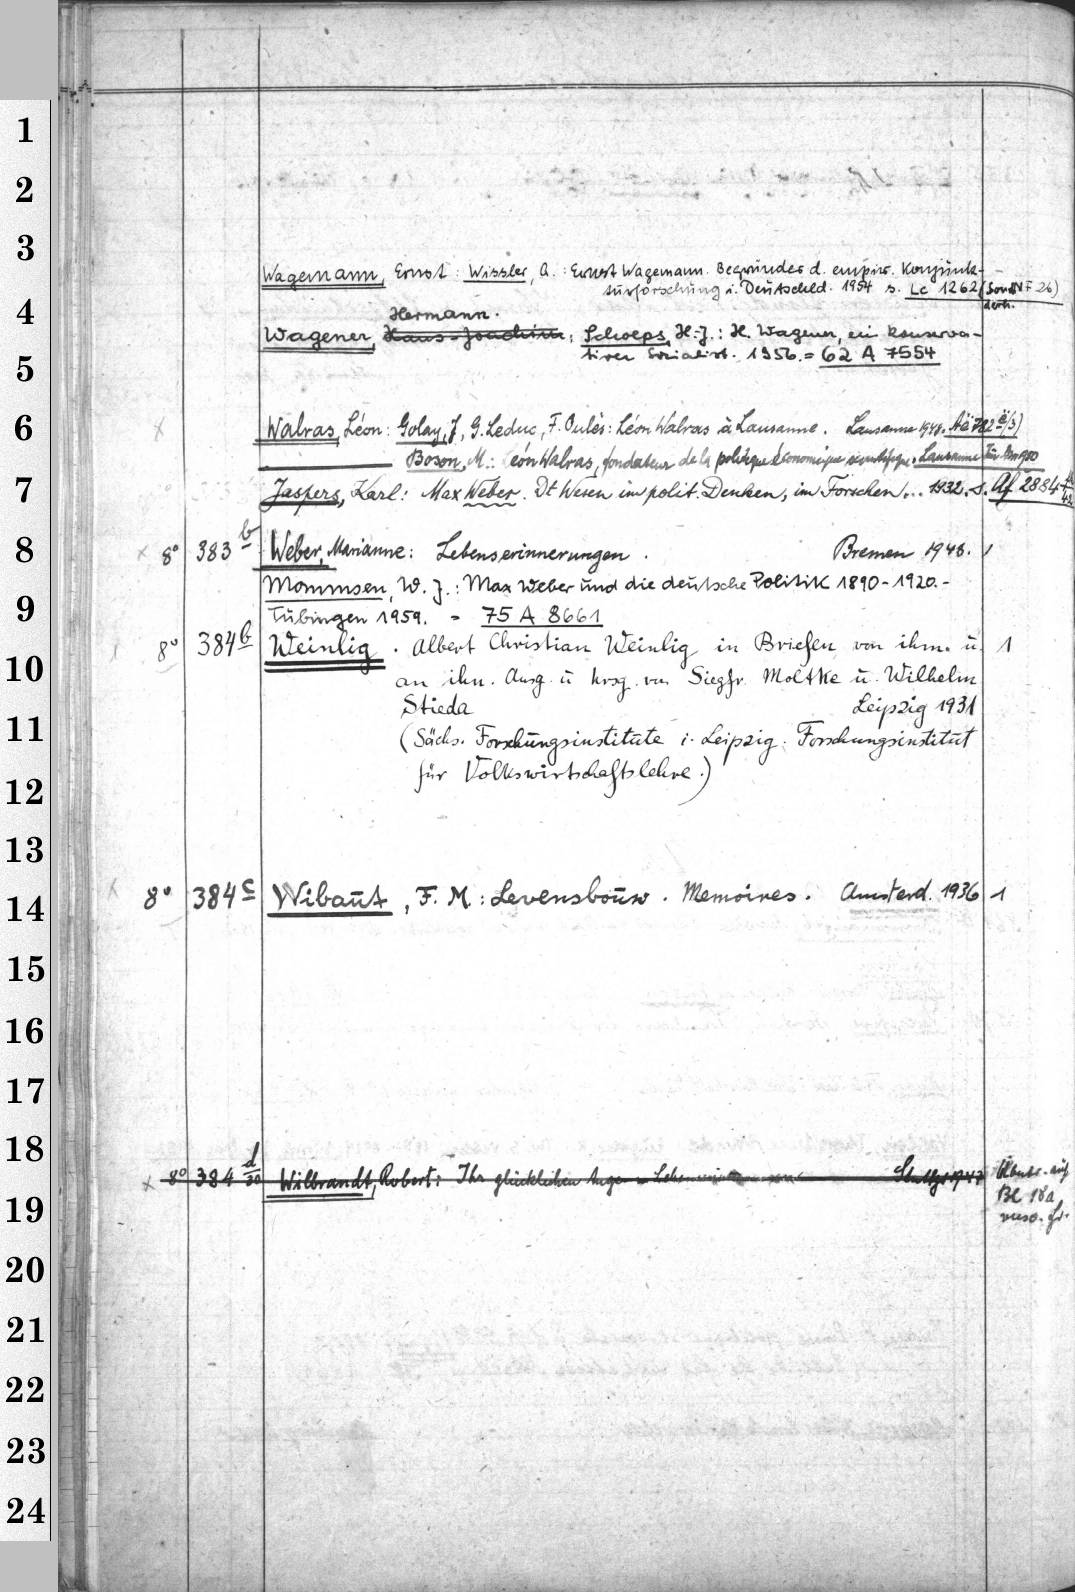 1
2
3
Wagemann, Ernst: Wissler, A.: Ernst Wagemann. Begründer d. empir. Konjunk-
turforschung i. Deutschld. 1954 s. Lc 1262 (NF 26)
4
Hermann.
Wagener, Hans-Joachim; Schoeps, H.-J.: H. Wagener, ein konserva-
tiver Sozialist. 1956. = 62 A 7554
5
6
Walras, Léon: Golay, J, G. Leduc, F. Oulès: Léon Walras à Lausanne. Lausanne 1948.
Boson, M.: Léon Walras, fondateur de la politique économique scientifique. Lausanne
7
Jaspers, Karl: Max Weber. Dt Wesen im polit. Denken, im Forschen... 1932. s. Af 2884
8
8° 383 b Weber, Marianne: Lebenserinnerungen. Bremen 1948. 1
Mommsen, W. J.: Max Weber und die deutsche Politik 1890-1920.-
9
Tübingen 1959. - 75 A 8661
8° 384 b Weinlig. Albert Christian Weinlig in Briefen von ihm u. 1
10
an ihn. Ausg. u hrsg. von Siegfr. Moltke u. Wilhelm
Stieda Leipzig 1931
11
(Sächs. Forschungsinstitute i. Leipzig. Forschungsinstitut
für Volkswirtschaftslehre.)
12
13
8° 384 c Wibaut, F. M.: Levensbouw. Memoires. Amsterd. 1936 1
14
15
16
17
18
8° 384 d/30 Wilbrandt, Robert: Ihr glücklichen Augen Stuttg. 1947
auf
Bl 18a
19
20
21
22
23
24